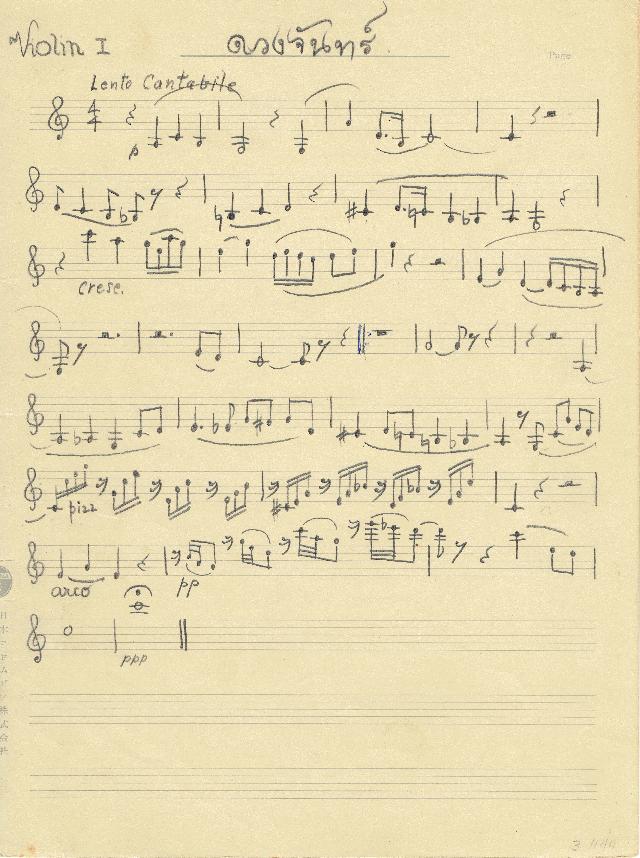 Violin I ดวงจันทร์
Page
Lento Cantabile
4
4
p
cresc.
pizz
arco pp
ppp